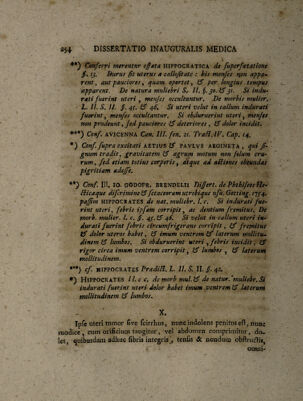 254 DISSERTATIO INAUGURALIS MEDICA
**) Conferri merentur effata HIPPOCRATICA de superfetatione
§. 15. Durus sit uterus a callositate: bis menses non appa-
rent, aut pauciores, quam oportet, & per longius tempus
apparent. De natura muliebri S. II. §. 31. & 51. Si indu-
rati fuerint uteri, menses occultantur. De morbis mulier.
L. II. S. II. §. 45. & 46. Si uteri velut in callum indurati
fuerint, menses occultantur. Si obduruerint uteri, menses
non prodeunt, sed pauciores & deteriores, & dolor incidit.
***) Conf. AVICENNA Can. III. fen. 21. Tract. IV. Cap. 14.
*) Conf. supra excitati AETIUS & PAULUS AEGINETA, qui si-
gnum tradit, gravitatem & aegrum motum non solum cru-
rum, sed etiam totius corporis, atque ad actiones obeundas
pigritiam adesse.
**) Conf. Ill. IO. GODOFR. BRENDELII Dissert. de Phthiseos He-
cticaeque discrimine & secretarum utribique usu Goetting. 1754.
passim HIPPOCRATES de nat. muliebr. l. c. Si indurati fue-
rint uteri, febris ipsam corripit, ac dentium fremitus. De
morb. mulier. l. c. §. 45. & 46. Si velut in callum uteri in-
durati fuerint febris circumfrigerans corripit, & fremitus
& dolor uteros habet, & imum ventrem & laterum mollitu-
dinem & lumbos. Si obduruerint uteri, febris incidit, &
rigor circa imum ventrem corripit, & lumbos, & laterum
mollitudinem.
***) cf. HIPPOCRATES Praedict. L. II. S. II. §. 42.
*) HIPPOCRATES ll. c. c. de morb mul & de natur. muliebr. Si
indurati fuerint uteri dolor habet imum ventrem & laterum
mollitudinem & lumbos.
X.
Ipse uteri tumor sive scirrhus, nunc indolens penitus est, nunc
modice, cum orificium tangitur, vel abdomen comprimitur, do-
let, quibusdam adhuc fibris integris, tensis & nondum obstructis,
omni-